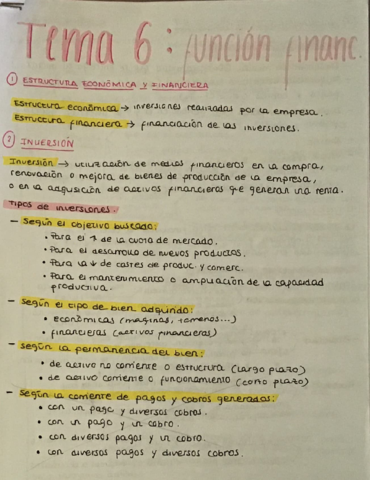 Tema 6: función financ.
① ESTRUCTURA ECONÓMICA Y FINANCIERA
Estructura económica → inversiones realizadas por la empresa.
Estructura financiera → financiación de las inversiones.
② INVERSIÓN
Inversión → utilización de medios financieros en la compra,
renovación o mejora de bienes de producción de la empresa,
o en la adquisición de activos financieros q·e generan una renta.
Tipos de inversiones.
– Según el objetivo buscado:
• Para el ↑ de la cuota de mercado.
• Para el desarrollo de nuevos productos.
• Para la ↓ de costes de produc. y comerc.
• Para el mantenimiento o ampliación de la capacidad
productiva.
– Según el tipo de bien adquirido:
• económicas (máquinas, terrenos...)
• financieras (activos financieros)
– Según la permanencia del bien:
• de activo no corriente o estructura (largo plazo)
• de activo corriente o funcionamiento (corto plazo)
– Según la corriente de pagos y cobros generados:
• con un pago y diversos cobros.
• con un pago y un cobro.
• con diversos pagos y un cobro.
• con diversos pagos y diversos cobros.